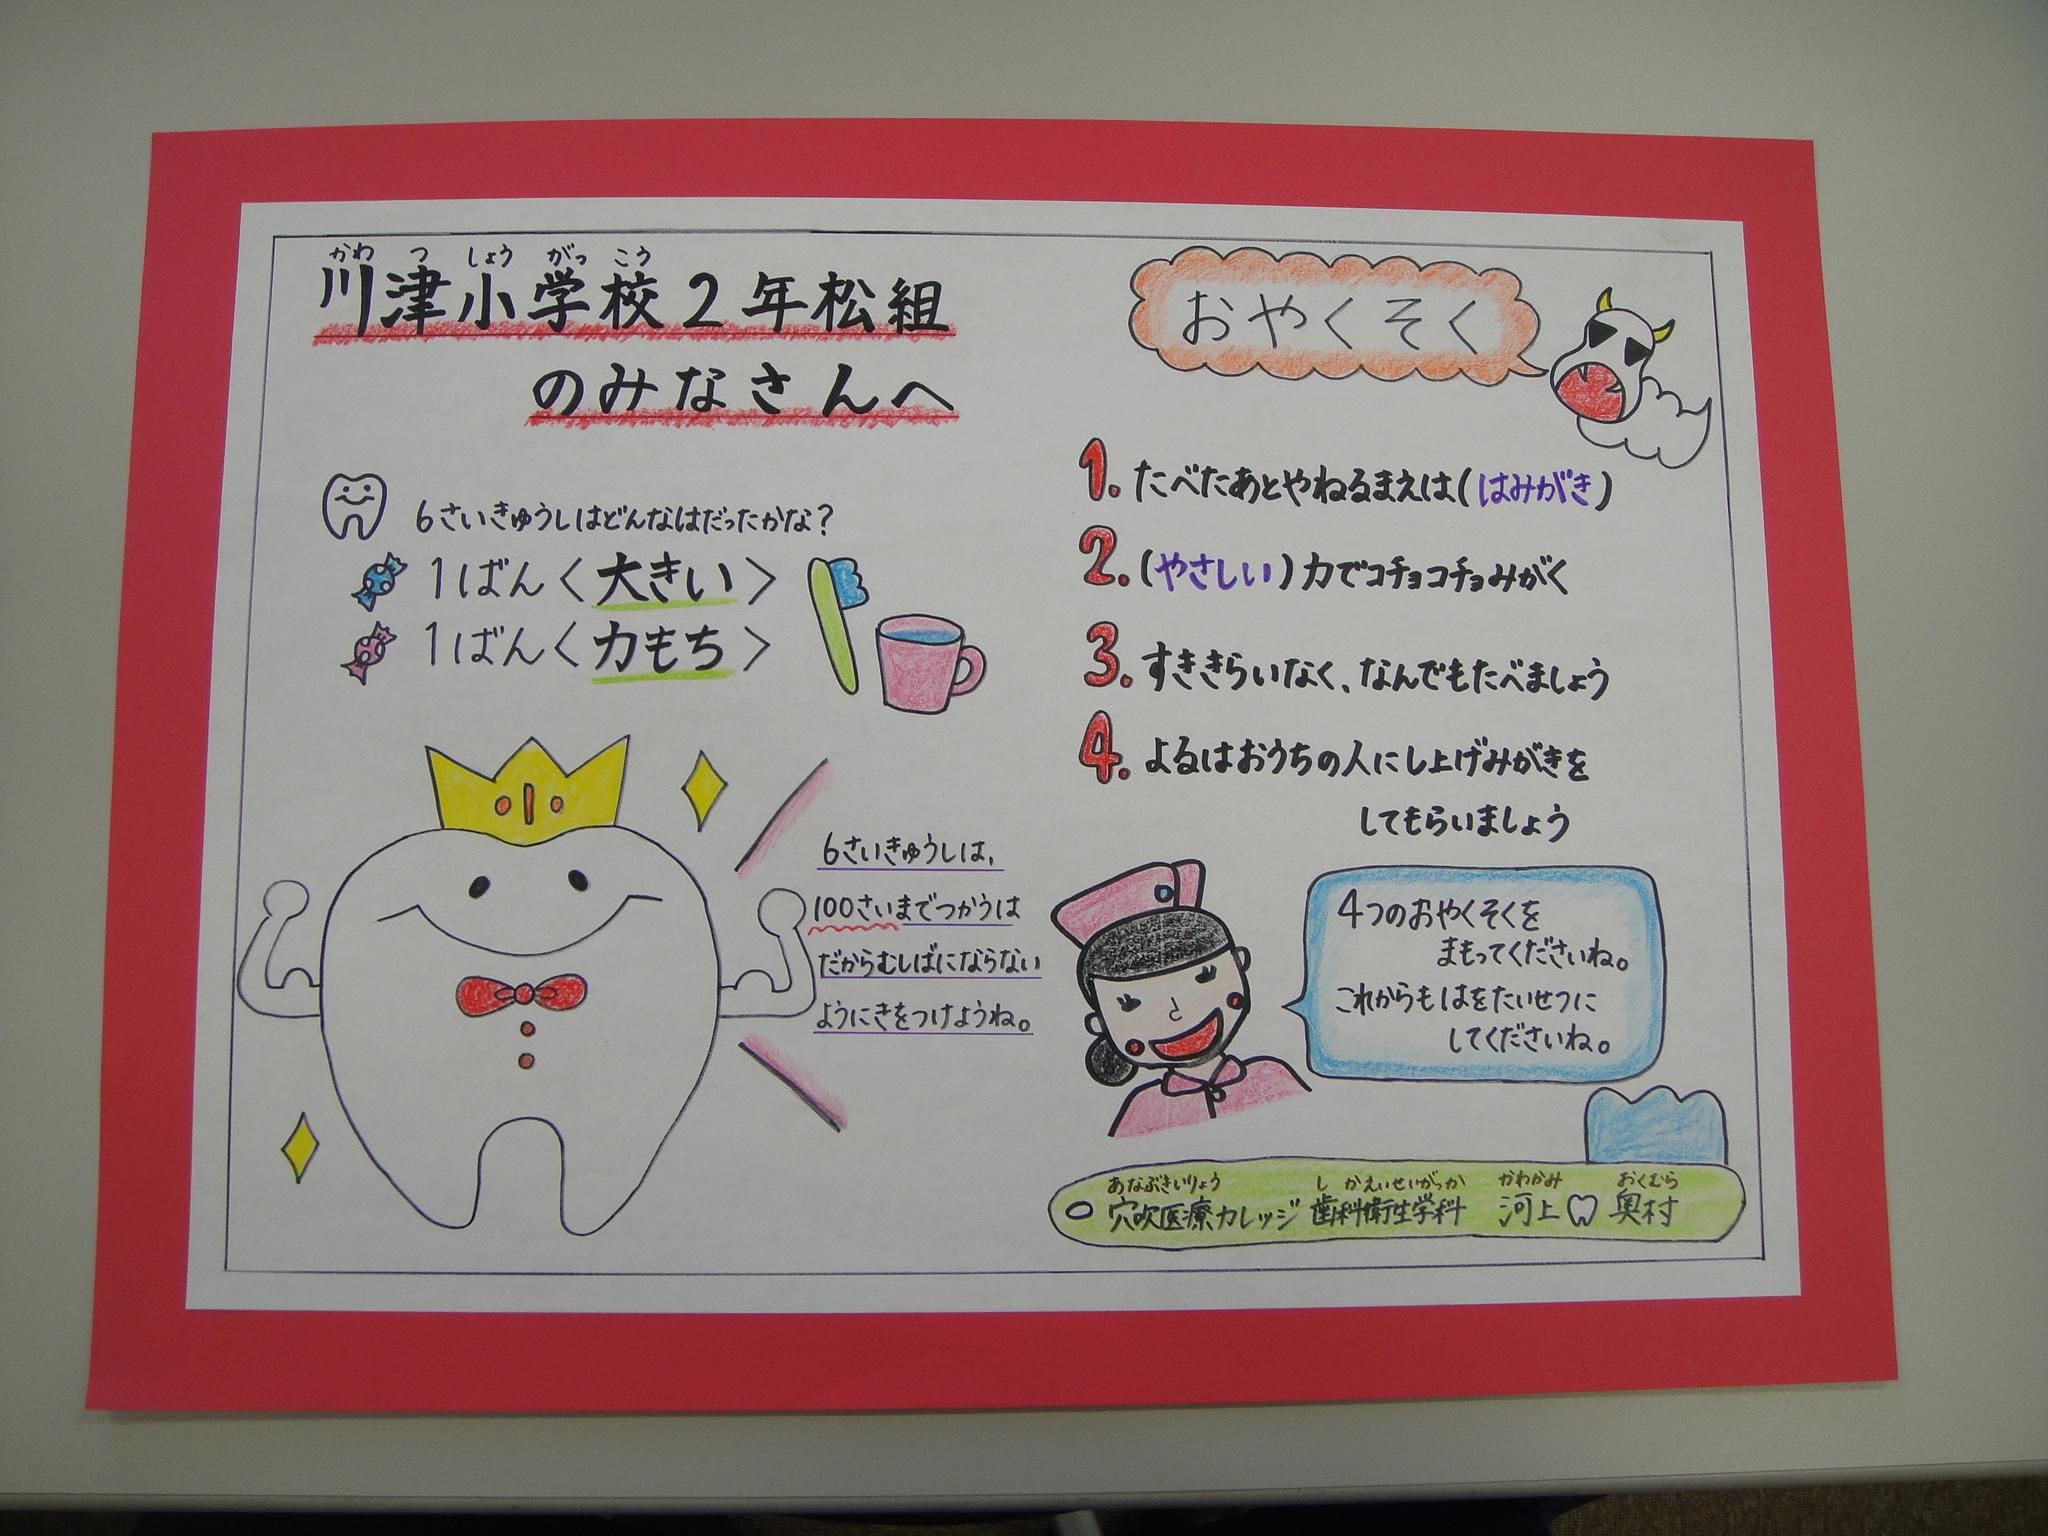 かわ つ しょう がっ こう
川津小学校2年松組
のみなさんへ
6さいきゅうしはどんなはだったかな?
1ばん〈大きい〉
1ばん〈力もち〉
6さいきゅうしは、
100さいまでつかうは
だからむしばにならない
ようにきをつけようね。
おやくそく
1. たべたあとやねるまえは(はみがき)
2. (やさしい)力でコチョコチョみがく
3. すききらいなく、なんでもたべましょう
4. よるはおうちの人にし上げみがきを
してもらいましょう
4つのおやくそくを
まもってくださいね。
これからもはをたいせつに
してくださいね。
あなぶきいりょう しかえいせいがっか かわかみ おくむら
穴吹医療カレッジ 歯科衛生学科 河上 奥村